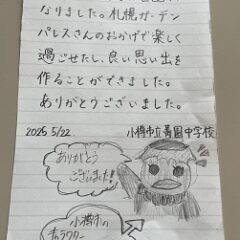 なりました。札幌ガーデン
パレスさんのおかげで楽しく
過ごせたし、良い思い出を
作ることができました。
ありがとうございました。
2025 5/22
小樽市立菁園中学校
ありがとう
ございました!
小樽市の
キャラクター